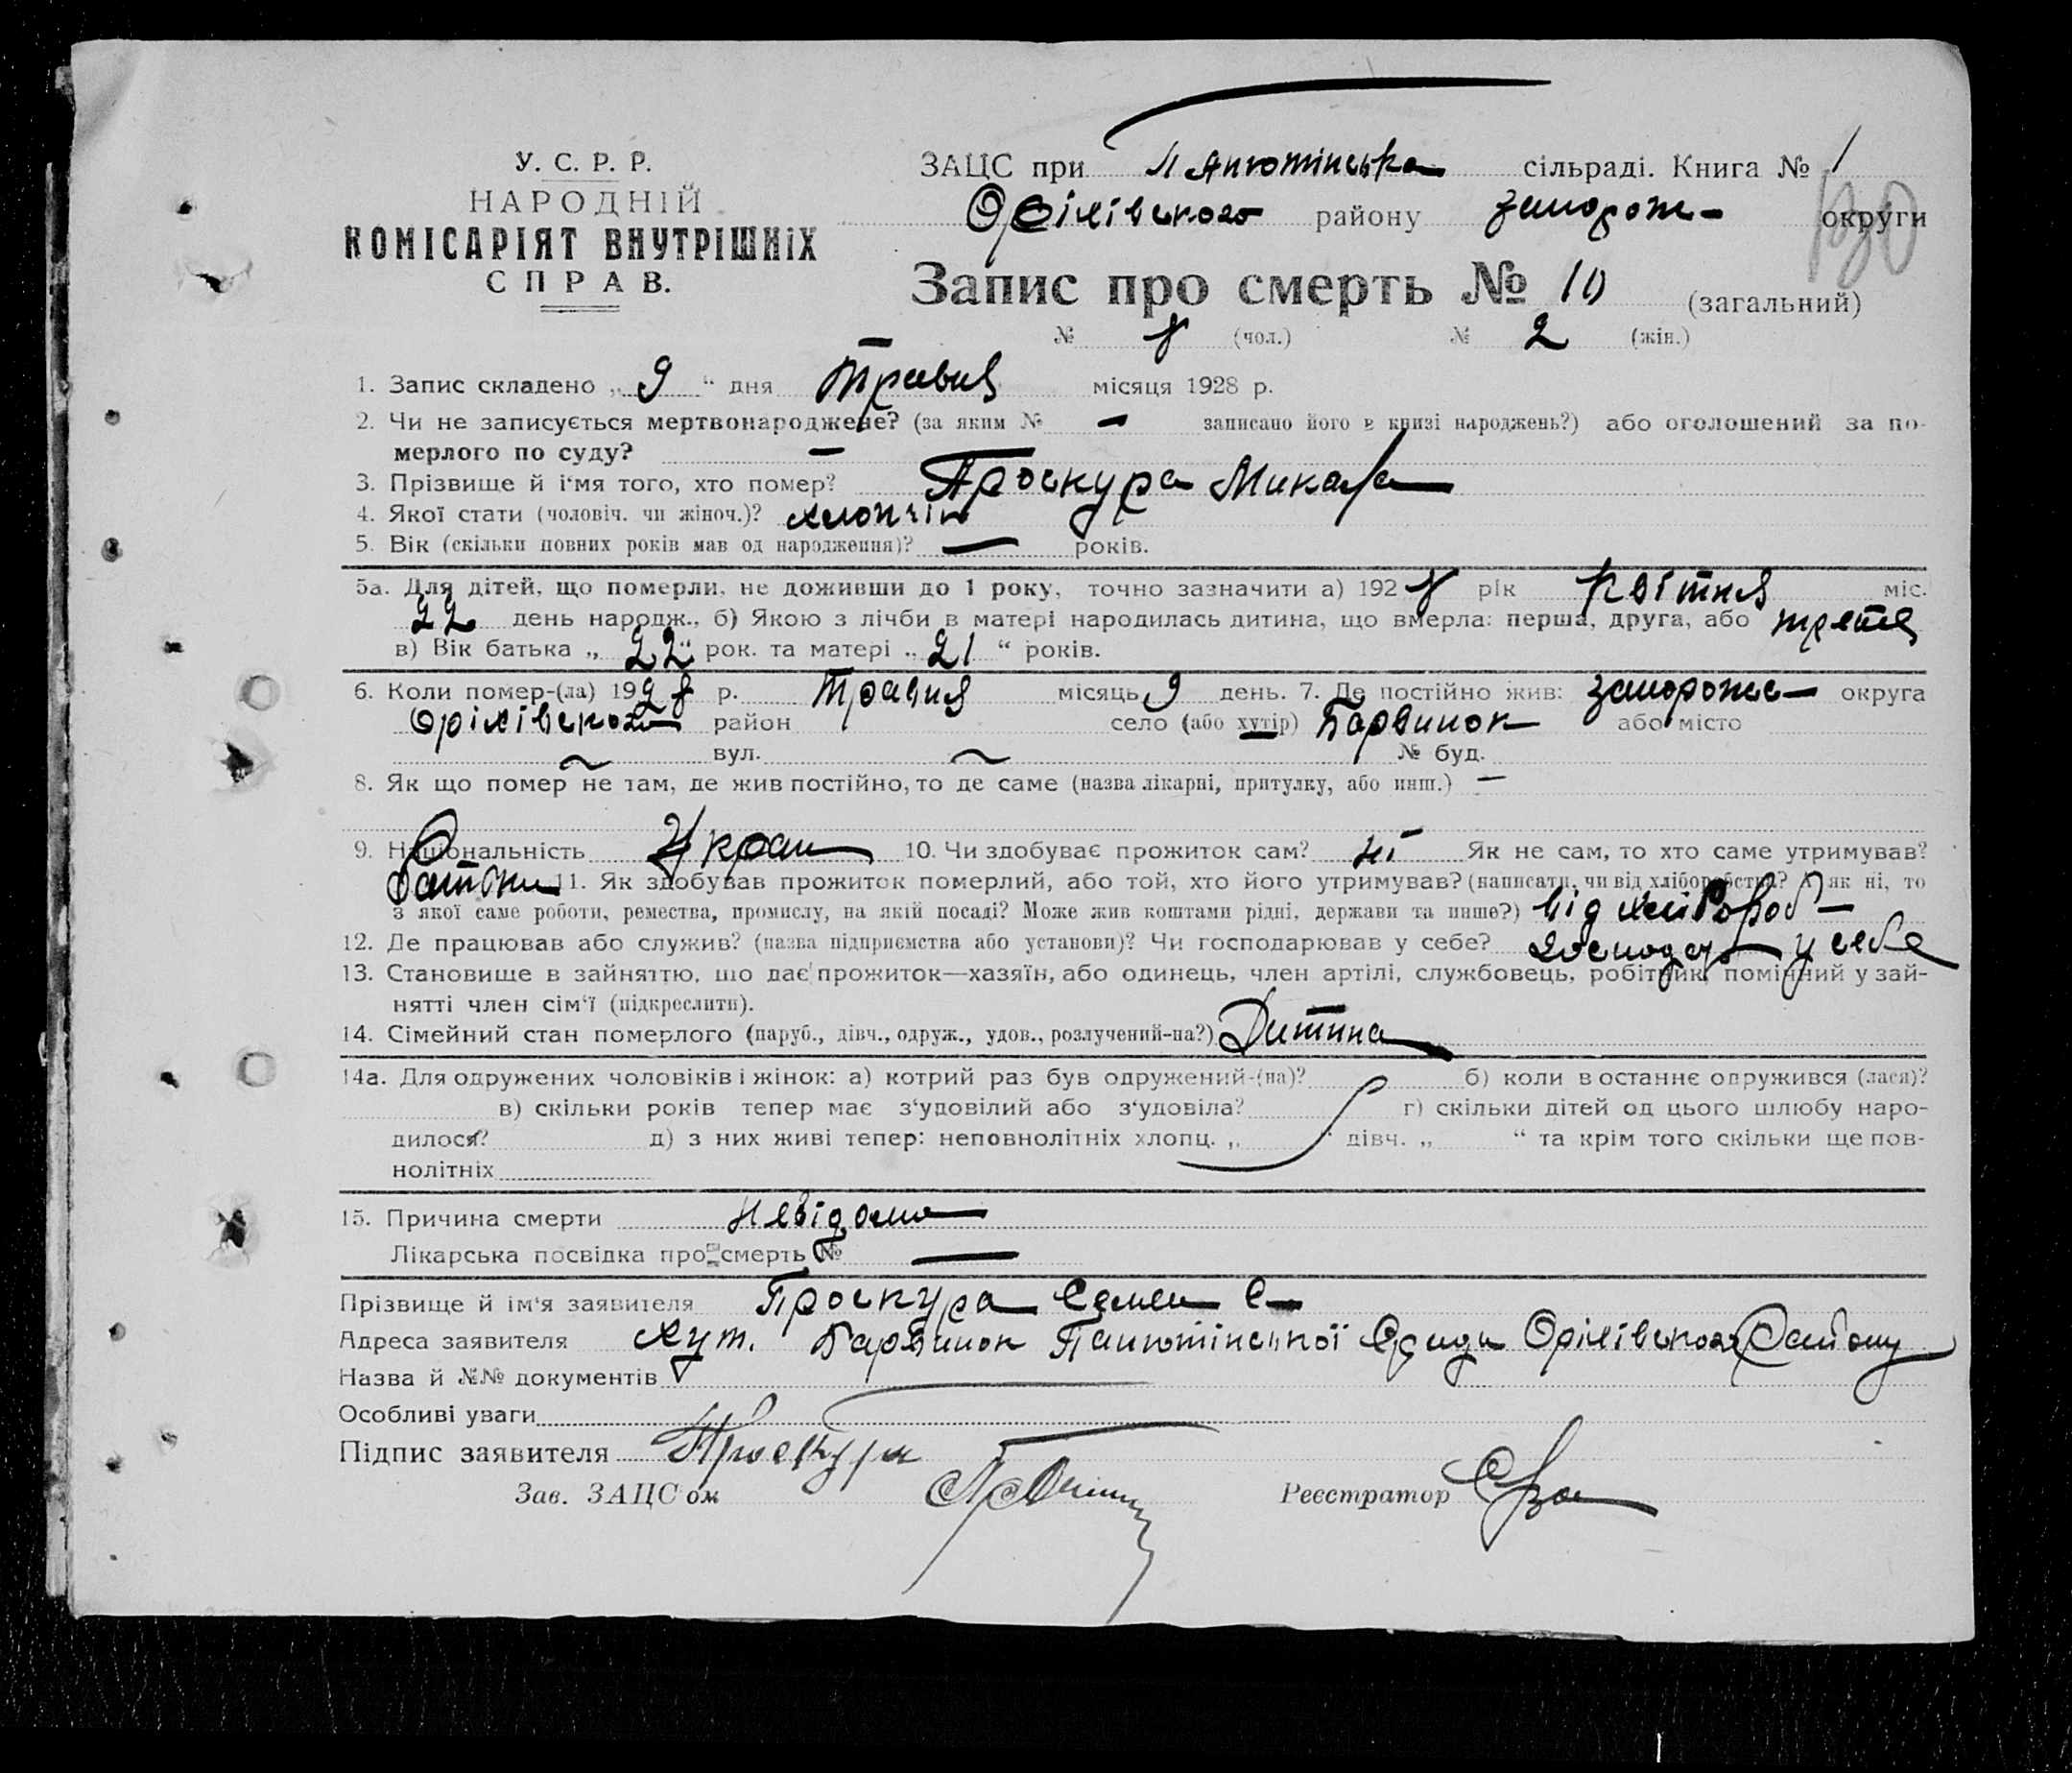 У. С. Р. Р.
НАРОДНІЙ
КОМІСАРІЯТ ВНУТРІШНІХ
СПРАВ.
ЗАЦС при Панютінська сільраді. Книга № 1
Оріхівського району Запорож- округи
130
Запис про смерть № 10 (загальний)
№ 8 (чол.) № 2 (жін.)
1. Запис складено „ 9 “ дня Травня місяця 1928 р.
2. Чи не записується мертвонароджене? (за яким № — записано його в книзі народжень?) або оголошений за по-
мерлого по суду? —
3. Прізвище й і'мя того, хто помер? Проскура Микола
4. Якої стати (чоловіч. чи жіноч.)? хлопчік
5. Вік (скільки повних років мав од народження)? — років.
5а. Для дітей, що померли, не доживши до 1 року, точно зазначити а) 1928 рік Квітня міс.
22 день народж., б) Якою з лічби в матері народилась дитина, що вмерла: перша, друга, або третя
в) Вік батька „ 22 “ рок. та матері „ 21 “ років.
6. Коли помер-(ла) 1928 р. Травня місяць 9 день. 7. Де постійно жив: Запорожс— округа
Оріхівського район село (або хутір) Барвинок або місто
~ вул. ~ № буд.
8. Як що помер не там, де жив постійно, то де саме (назва лікарні, притулку, або инш.) —
9. Національність Україн 10. Чи здобуває прожиток сам? ні Як не сам, то хто саме утримував?
Батьки 11. Як здобував прожиток померлий, або той, хто його утримував? (написати, чи від хліборобства? А як ні, то
з якої саме роботи, ремества, промислу, на якій посаді? Може жив коштами рідні, держави та инше?) Від хлібороб—
12. Де працював або служив? (назва підприємства або установи)? Чи господарював у себе? господар у себе
13. Становище в зайняттю, що дає прожиток—хазяїн, або одинець, член артілі, службовець, робітник, помічний у зай-
нятті член сім'ї (підкреслити).
14. Сімейний стан померлого (паруб., дівч., одруж., удов., розлучений-на?) Дитина
14а. Для одружених чоловіків і жінок: а) котрий раз був одружений-(на)? б) коли в останнє опружився (лася)?
в) скільки років тепер має з'удовілий або з'удовіла? г) скільки дітей од цього шлюбу наро-
дилося? д) з них живі тепер: неповнолітніх хлопц. „ “ дівч. „ “ та крім того скільки ще пов-
нолітніх
15. Причина смерти Невідома
Лікарська посвідка про смерть № —
Прізвище й ім'я заявителя Проскура Семен С—
Адреса заявителя Хут. Барвинок Панютінської с/ради Оріхівського Району
Назва й №№ документів
Особливі уваги
Підпис заявителя Проскура
Зав. ЗАЦС ом
Реєстратор